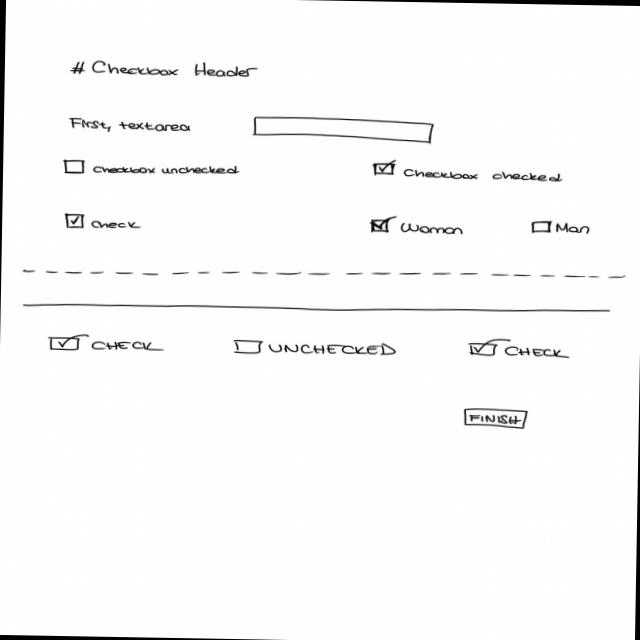 # Checkbox Header
First, textarea
Checkbox unchecked Checkbox checked
Check Woman Man
CHECK UNCHECKED CHECK
FINISH